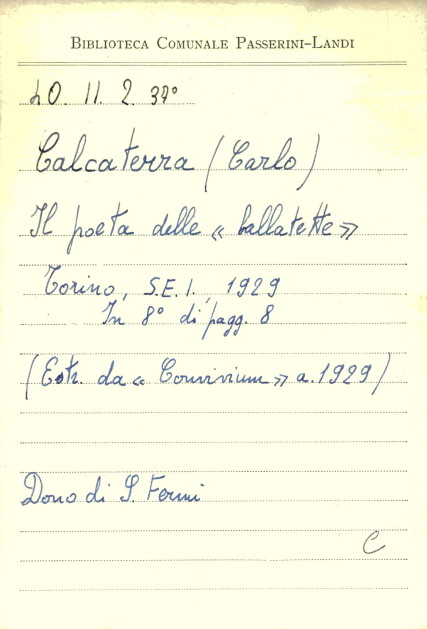 BIBLIOTECA COMUNALE PASSERINI-LANDI
40. 11. 2. 37°
Calcaterra (Carlo)
Il poeta delle « ballatette »
Torino, S.E.I., 1929
In 8° di pagg. 8
(Estr. da « Convivium » a. 1929)
Dono di S. Fermi
C